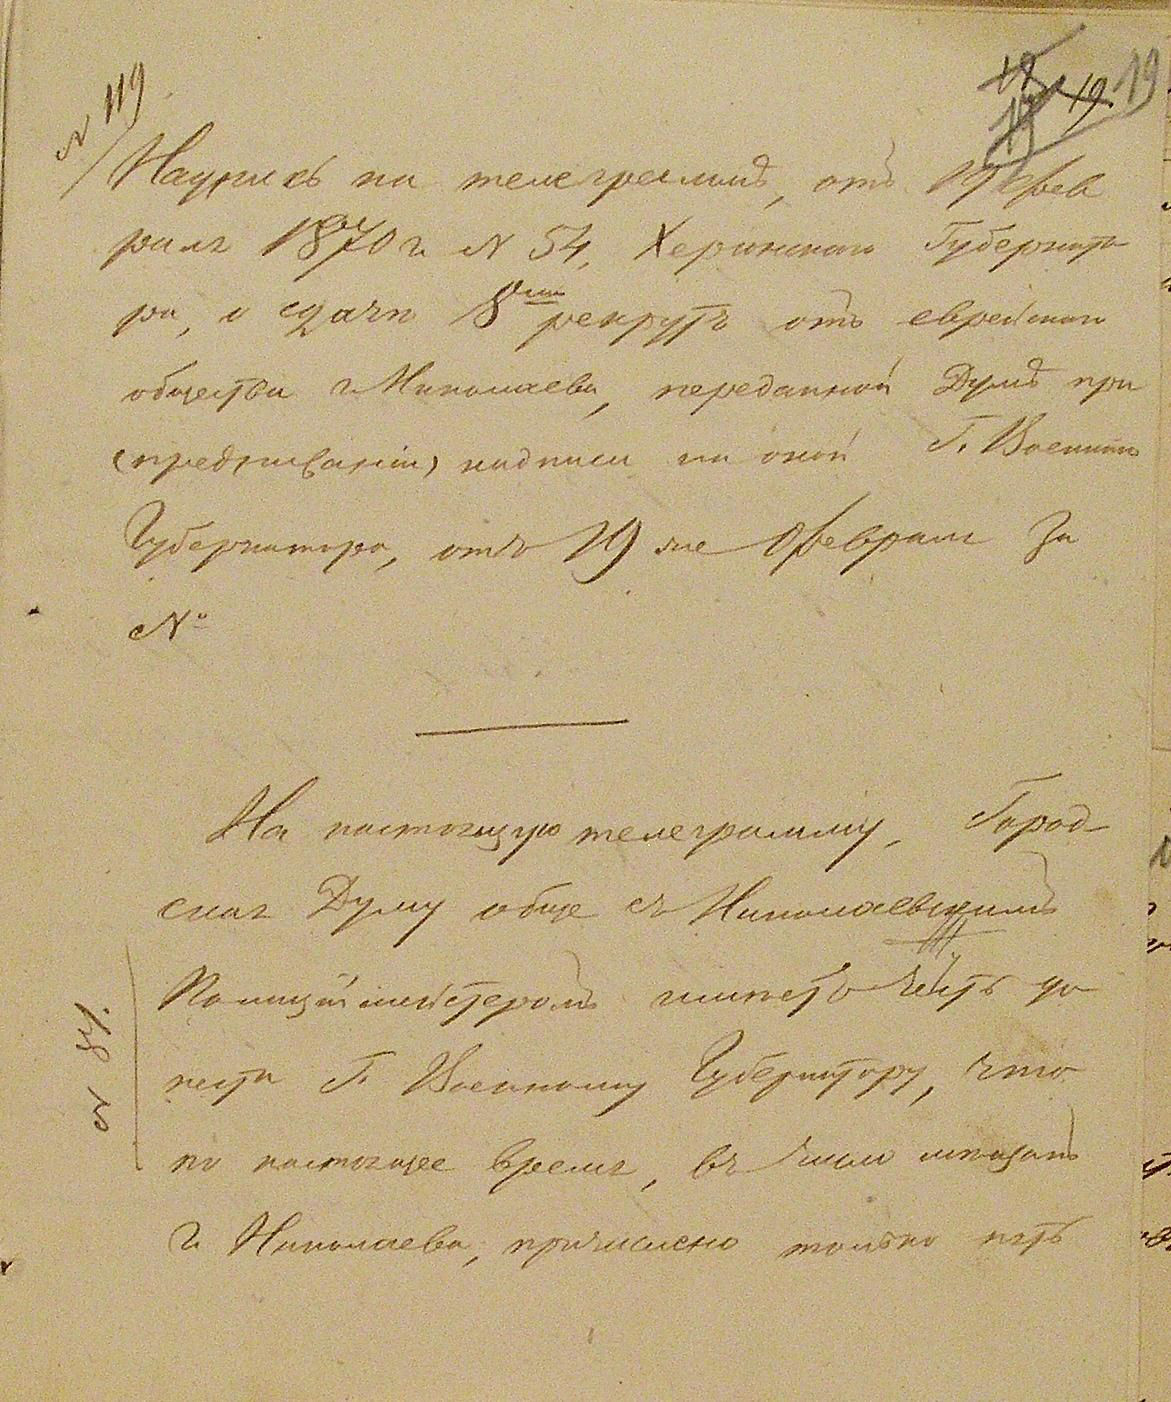 19 19 19
17
№ 119
Надпись на телеграммѣ, отъ 19 Фев
раля 1870 г. № 54, Херсонскаго Губернато
ра, о сдачѣ 8ми рекрутъ отъ еврейскаго
общества г. Николаева, переданной Думѣ при
(предписаніи) надписи на оной Г. Военнаго
Губернатора, отъ 19 же Февраля за
№
На настоящую телеграмму, Город-
ская Дума обще съ Николаевскимъ
Полицiймейстеромъ имѣетъ честь до
нести Г. Военному Губернатору, что
по настоящее время, въ число мѣщанъ
г. Николаева, причислено только пять
№ 81.